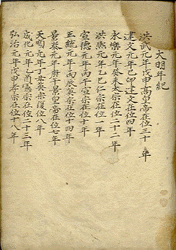 大明年紀
洪武元年戊申高皇帝在位三十一年
建文元年己卯建文在位四年
永樂元年癸未太宗在位二十二年
洪熙元年乙巳仁宗在位一年
宣德元年丙午宣宗在位十年
正統元年丙辰英宗在位十四年
景泰元年庚午景皇帝在位七年
天順元年丁丑英宗復位八年
成化元年乙酉憲宗在位二十三年
弘治元年戊申孝宗在位十八年